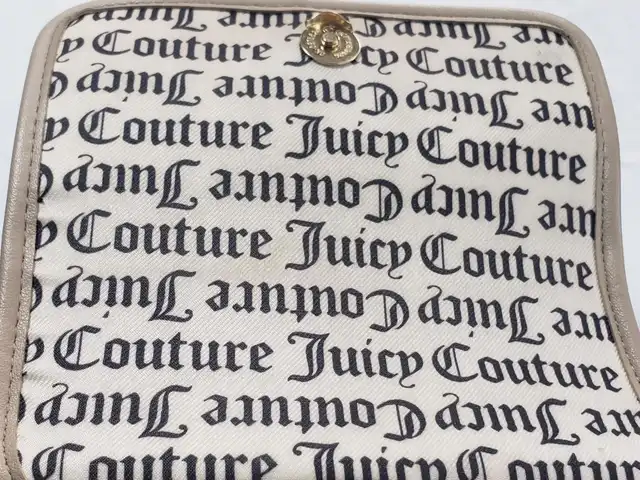 ure Juicy Couture Juicy
y Couture Juicy Couture
ure Juicy Couture Juicy
y Couture Juicy Couture
ure Juicy Couture Juicy
y Couture Juicy Couture
ure Juicy Couture Juicy
y Couture Juicy Couture
ure Juicy Couture Juicy
Couture Juicy Couture